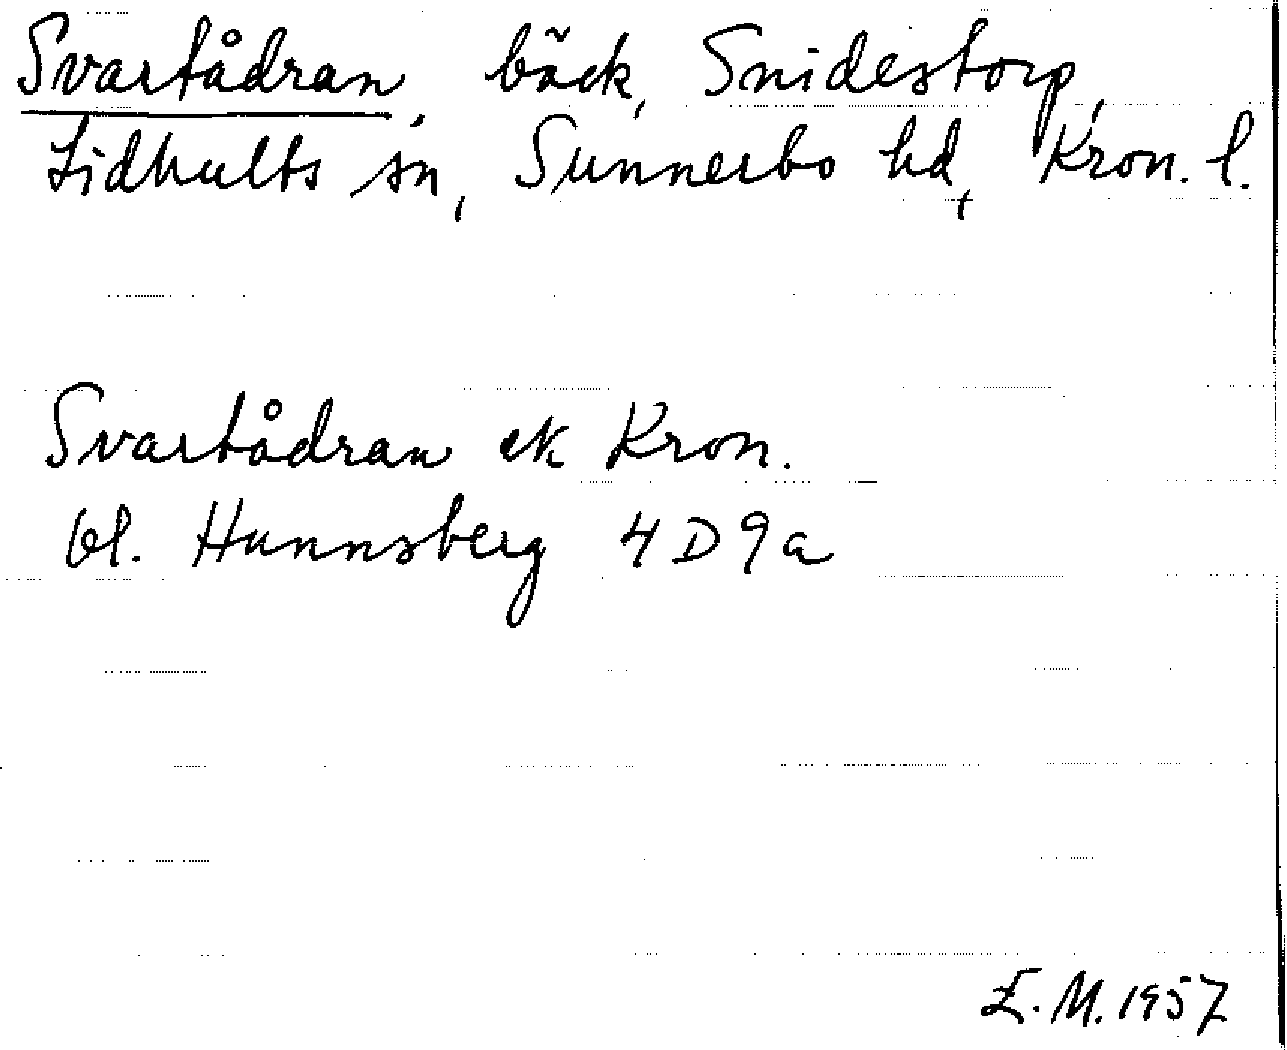 Svartådran, bäck, Snidestorp,
Lidhults sn, Sunnerbo hd, Kron. l.
Svartådran ek Kron.
bl. Hunnsberg 4D9a
E.M. 1957